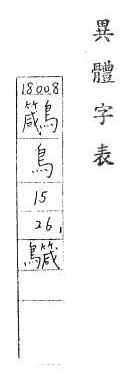 異體字表
18008
鳥
15
26,